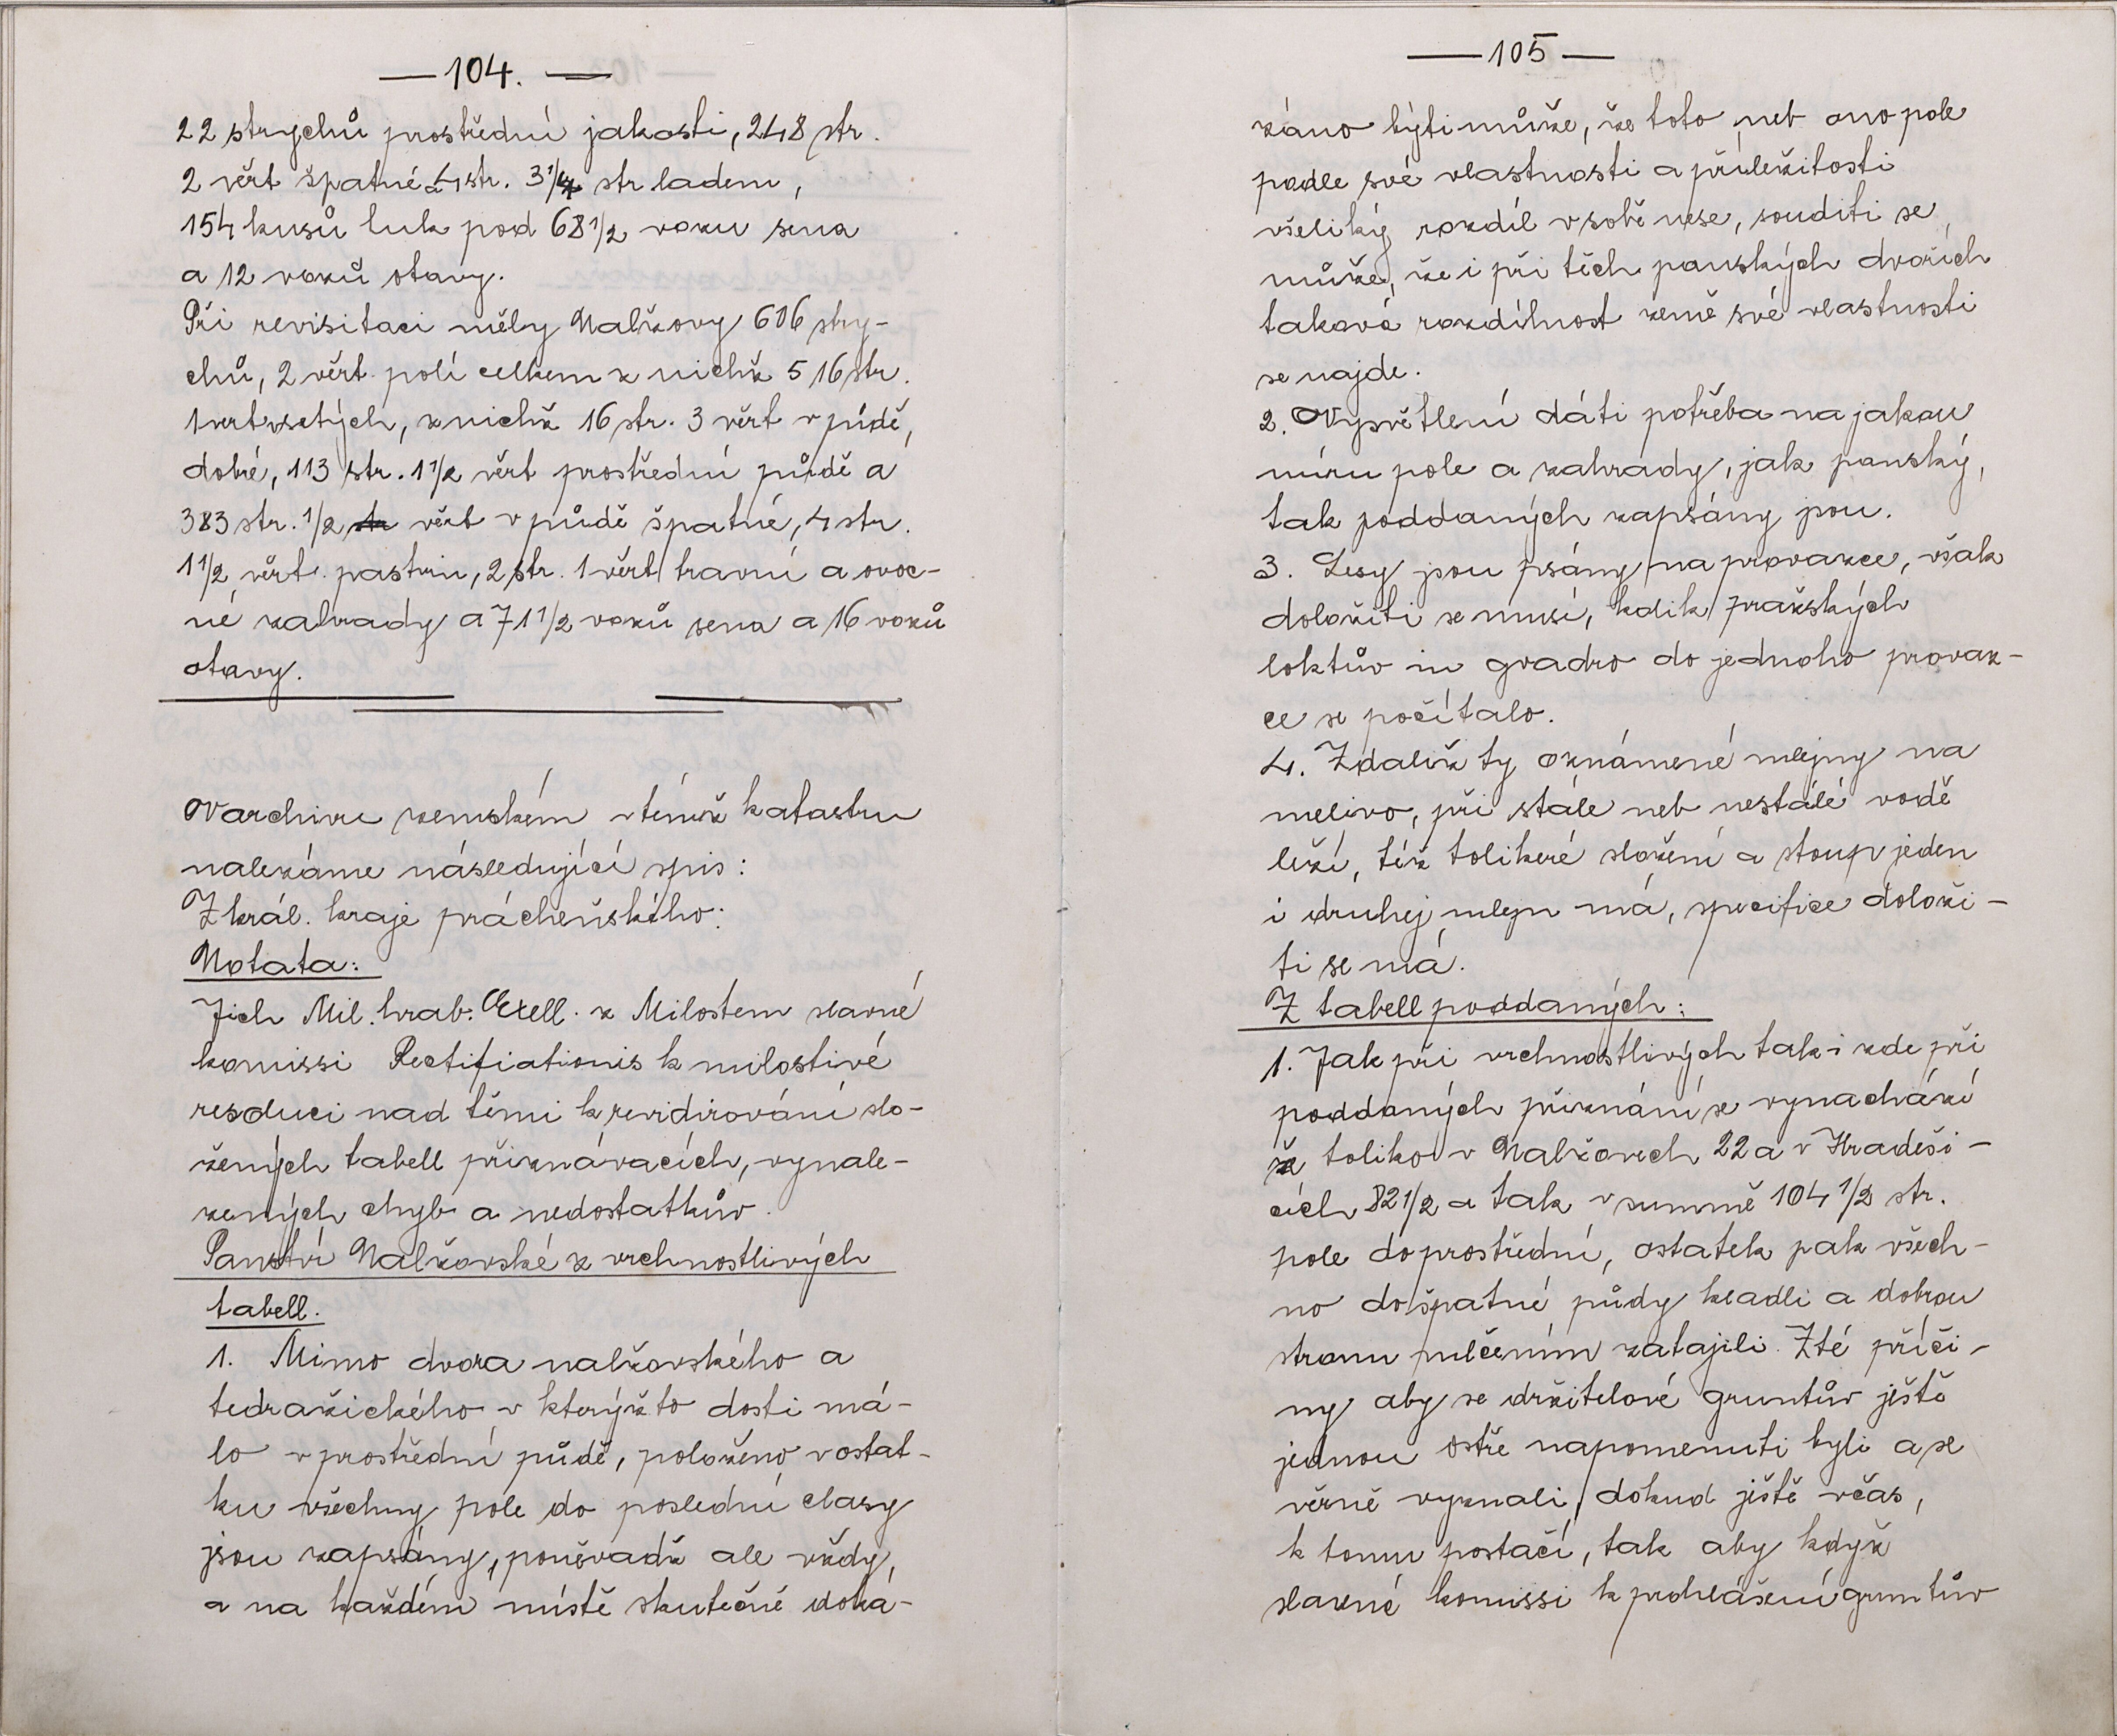 — 104. —
22 strychů prostřední jakosti, 248 str.
2 věrt špatné a 4 str. 3 1/4 str ladem,
154 kusů luk pod 68 1/2 vozu sena
a 12 vozů otavy.
Při revisitaci měly Nalžovy 606 stry-
chů, 2 věrt. polí celkem z nichž 516 str.
1 vert. setých, z nichž 16 str. 3 věrt v půdě,
dobré, 113 str. 1 1/2 věrt prostřední půdě a
383 str. 1/2 věrt v půdě špatné, 4 str.
1 1/2 věrt. pastvin, 2 str. 1 věrt travní a ovoc-
né zahrady a 71 1/2 vozů sena a 16 vozů
otavy.
V archivu zemském v témž katastru
nalezáme následující spis:
Z král. kraje prácheňského:
Notata:
Jich Mil. hrab. Excell. z Milostem slavné
komissi Rectifiationis k milostivé
resoluci nad těmi k revidirování slo-
žených tabell přiznávacích, vynale-
zených chyb a nedostatkův.
Panství Nalžovské z vrchnostlivých
tabell.
1. Mimo dvora nalžovského a
tedražického v kterýžto dosti má-
lo v prostřední půdě, položeno v ostat-
ku všechny pole do poslední clasy
jsou zapsány, poněvadž ale vždy,
a na každém místě skutečně doká-
— 105 —
záno býti může, že toto neb ono pole
podle své vlastnosti a příležitosti
všeliký rozdíl v sobě nese, souditi se
může, že i při těch panských dvořích
taková rozdílnost země své vlastnosti
se najde.
2. Vysvětlení dáti potřeba na jakou
míru pole a zahrady, jak panský,
tak poddaných zapsány jsou.
3. Lesy jsou psány na provazce, však
doložiti se musí, kdik pražských
loktův in qvadro do jednoho provaz-
ce se počítalo.
4. Zdaliž ty oznámené mlejny na
melivo, při stále neb nestálé vodě
leží, též tolikeré složení a stoup jeden
i druhej mlejn má, specifice doloži-
ti se má.
Z tabell poddaných:
1. Jak při vrchnostlivých tak i zde při
poddaných přiznání se vynachází
že toliko v Nalžovech 22 a v Hradeši-
cích 82 1/2 a tak v summě 104 1/2 str.
pole do prostřední, ostatek pak všech-
no do špatné půdy kladli a dobrou
stranu mlčením zatajili. Z té příči-
ny aby se držitelové gruntův ještě
jednou ostře napomenuti byli a se
věrně vyznali, dokud ještě včas,
k tomu postačí, tak aby když
slavné komissi k prohlášení gruntův